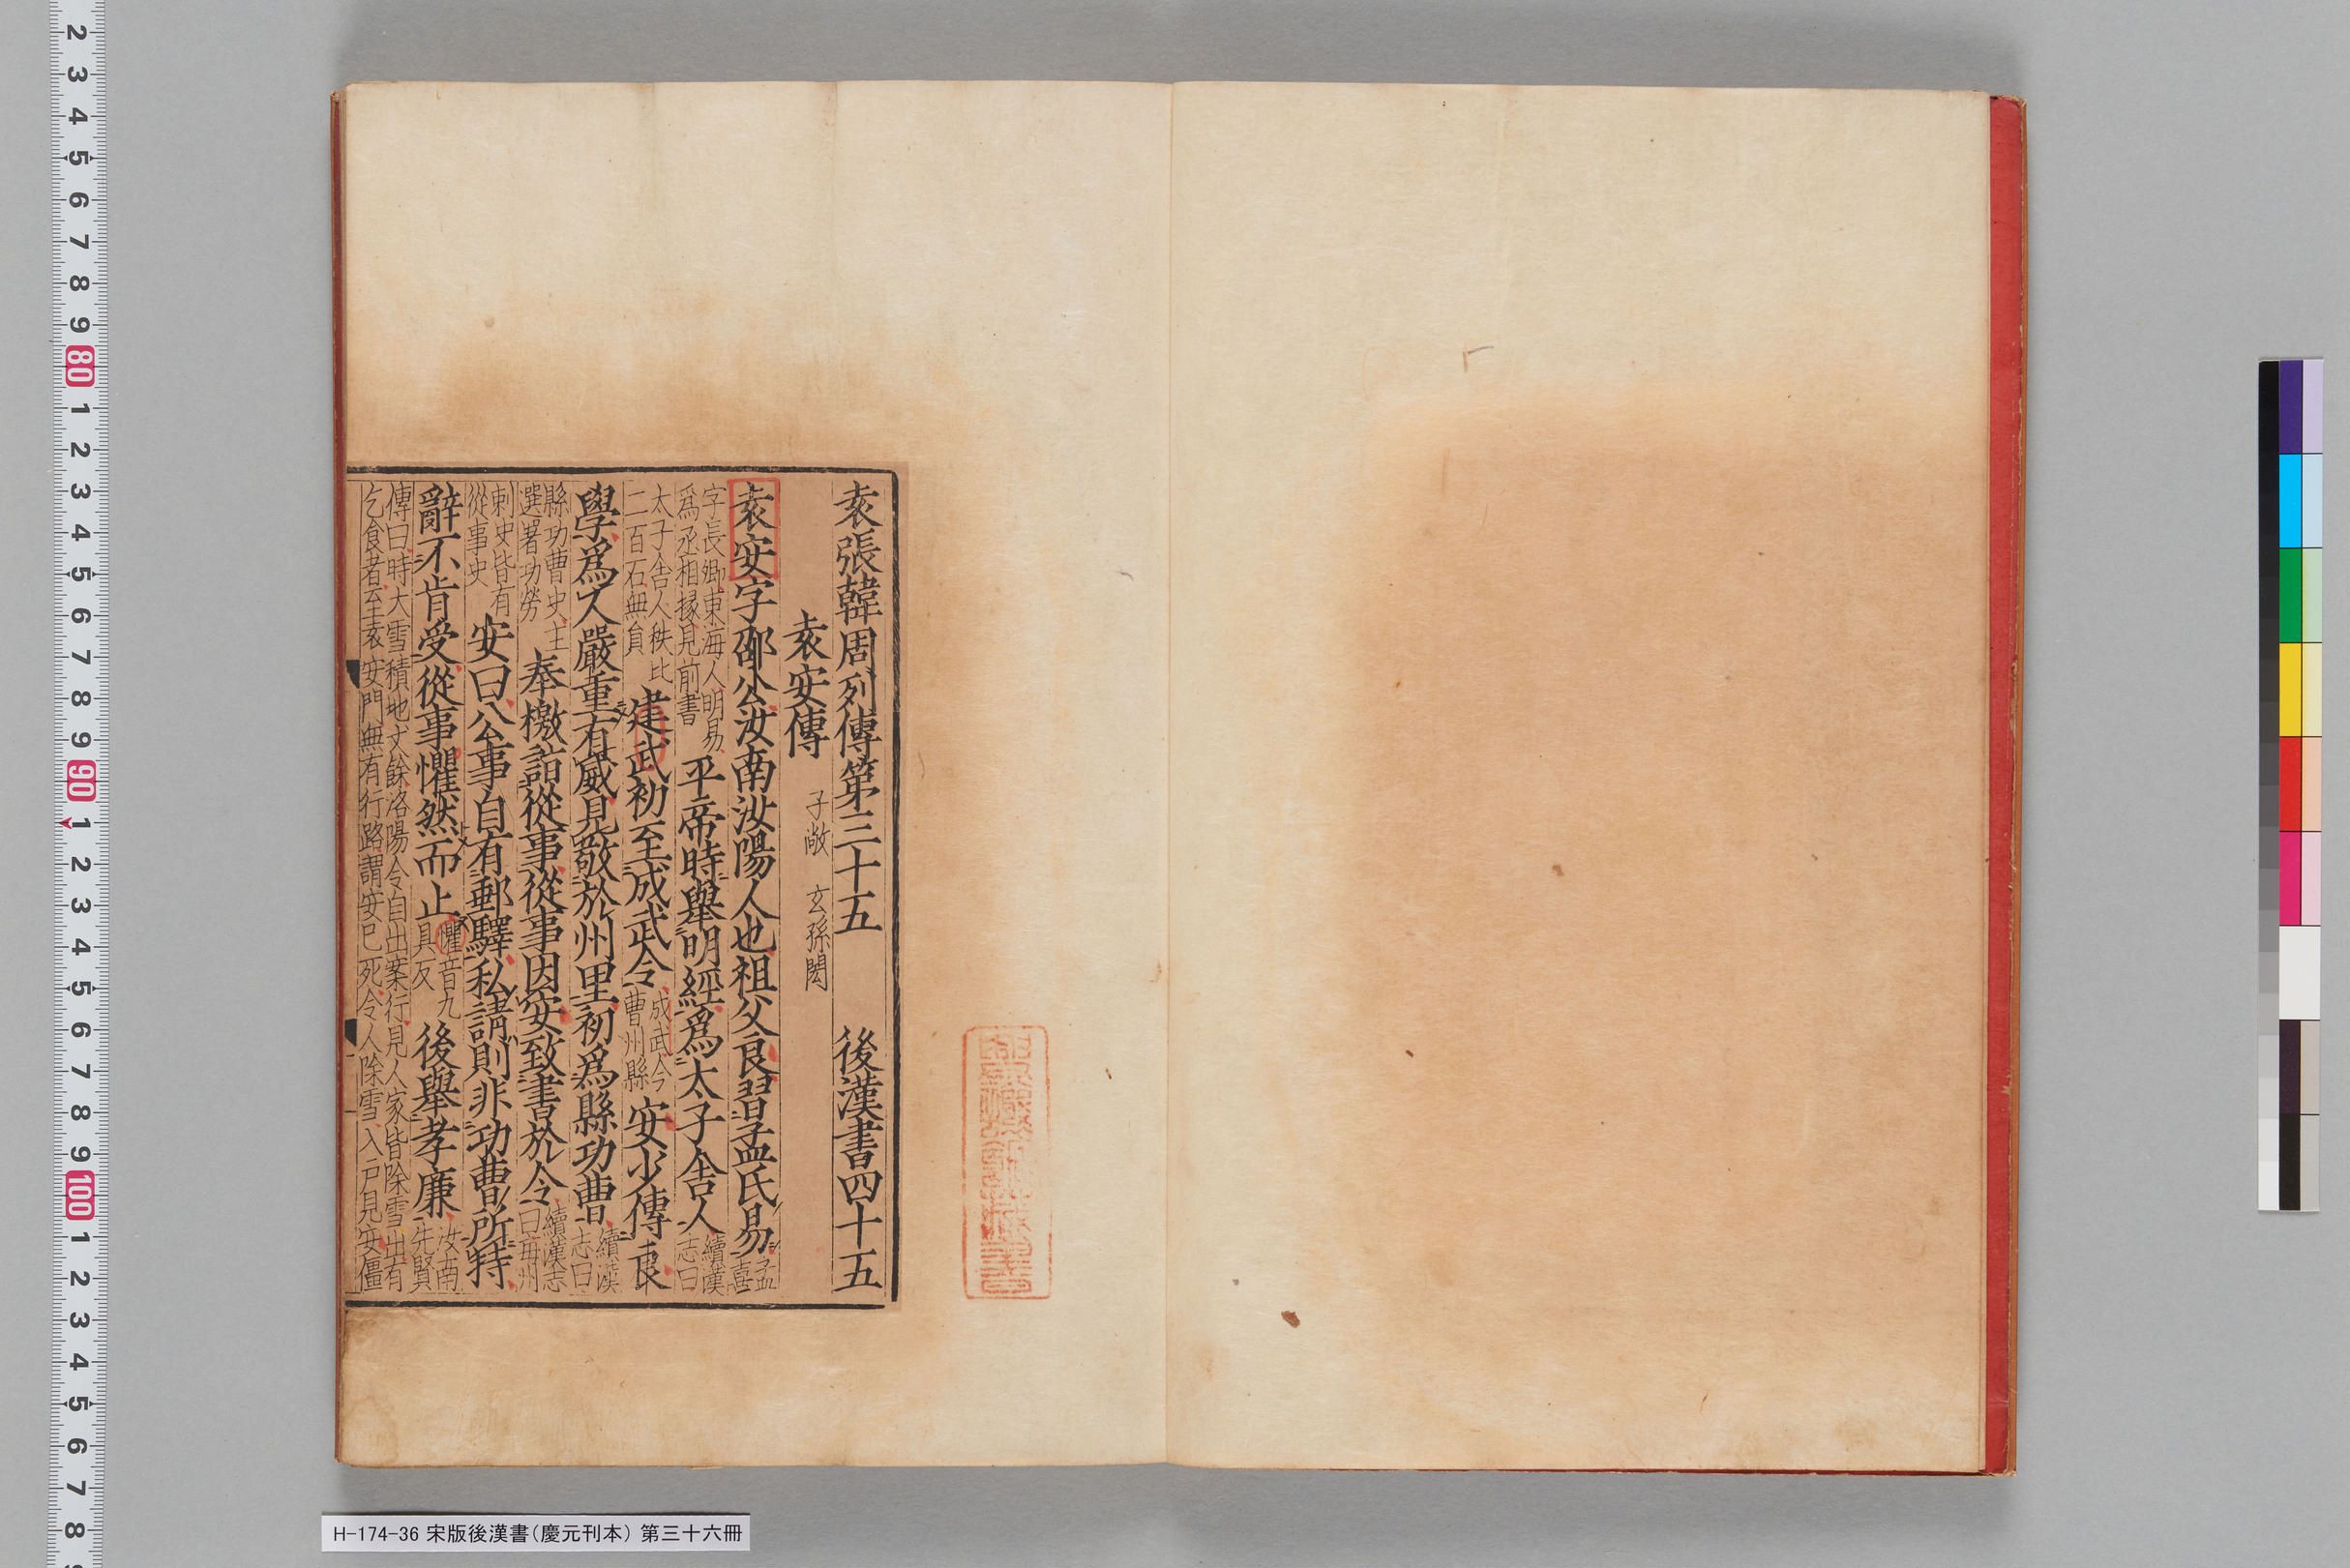 袁張韓周列傳第三十五　後漢書四十五
袁安傳　子敞　玄孫閎
袁安字邵公汝南汝陽人也祖父良習孟氏易孟喜
字長卿東海人明易爲丞相掾見前書平帝時舉明經爲太子舍人續漢志曰
太子舍人秩比二百石無員建武初至成武令成武今曹州縣安少傳良
學爲人嚴重有威見敬於州里初爲縣功曹續漢志曰
縣功曹史主選署功勞奉檄詣從事從事因安致書於令續漢志曰每州
刺史皆有從事史安曰公事自有郵驛私請則非功曹所持
辭不肯受從事懼然而止懼音九具反後舉孝廉汝南先賢
傳曰時大雪積地丈餘洛陽令自出案行見人家皆除雪出有乞食者至袁安門無有行路謂安已死令人除雪入戶見安僵
H-174-36 宋版後漢書（慶元刊本） 第三十六冊
2 3 4 5 6 7 8 9 80 1 2 3 4 5 6 7 8 9 90 1 2 3 4 5 6 7 8 9 100 1 2 3 4 5 6 7 8